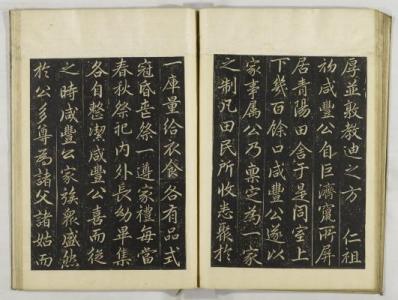 厚並敦教迪之方 仁祖
初咸豐公自巨濟竄所屏
居青陽田舍于是同室上
下幾百餘口咸豐公遂以
家事屬公乃稟定為一家
之制凡田民所收悉聚於
一庫量給衣食各有品式
冠昏喪祭一遵家禮每當
春秋祭祀內外長幼畢集
各自整潔咸豐公喜而從
之時咸豐公家族衆盛然
於公多尊為諸父諸姑而